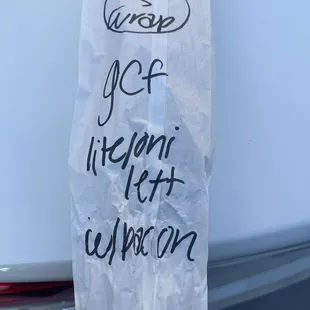 wrap
gcf
lite/oni
lett
w/bacon